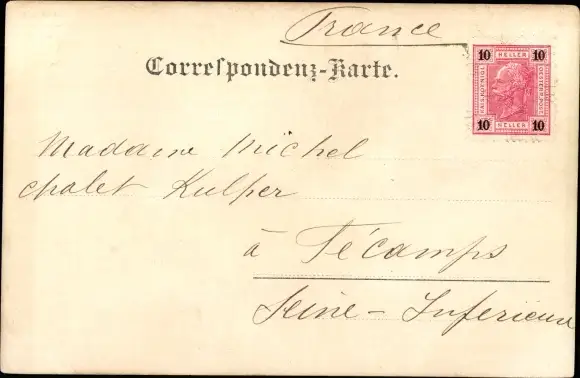 France
Correspondenz-Karte.
10 HELLER 10
KAIS. KOENIGL. OESTERR. POST
10 HELLER 10
Madame Michel
chalet Kulper
à Fécamps
Seine-Inferieure